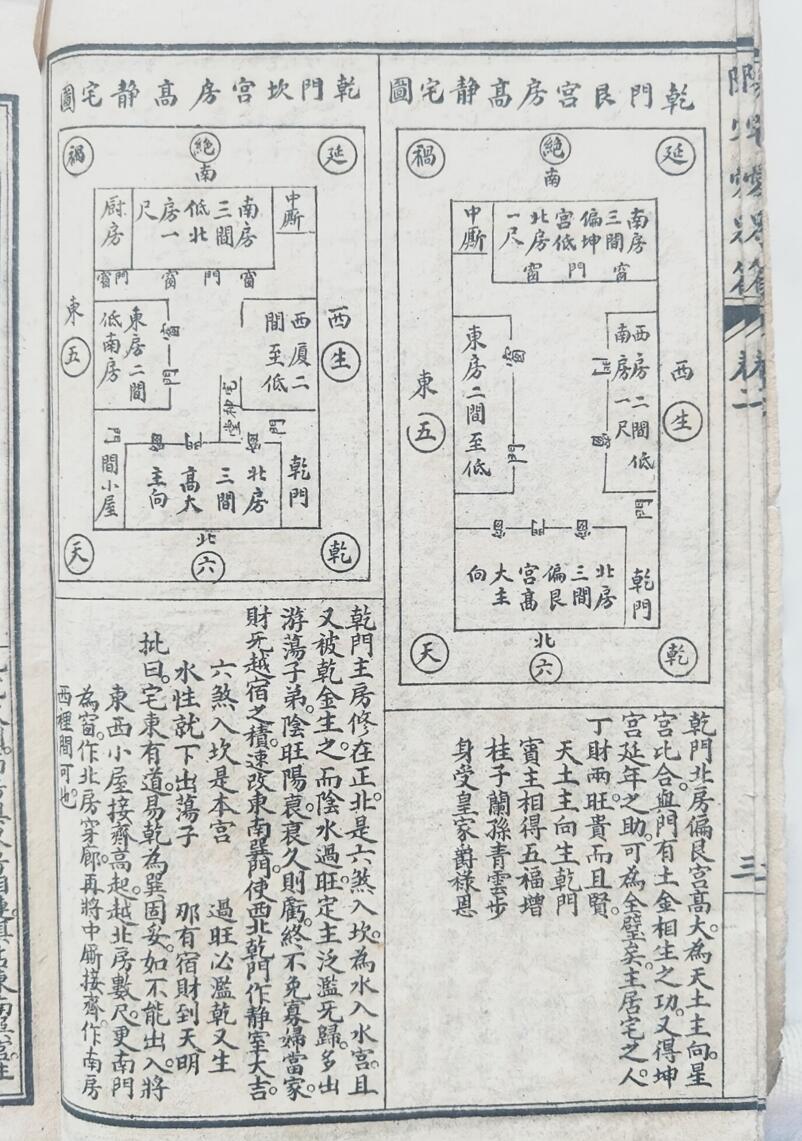 乾門艮宮房高静宅圖
延
絶
禍
南
南房
三間
偏坤
宮低
北房
一尺
中厮
窗
門
窗
西房二間低
南房一尺
西
生
東房二間至低
東
五
窗
門
門
窗
門
乾門
北房
三間
偏艮
宮高
大主
向
窗
門
窗
北
六
天
乾
乾門北房偏艮宮高大為天土主向星
宮比合與門有土金相生之功又得坤
宮延年之助可為全璧矣主居宅之人
丁財兩旺貴而且賢
天土主向生乾門
賓主相得五福增
桂子蘭孫青雲步
身受皇家爵祿恩
乾門坎宮房高静宅圖
延
絶
禍
南
中厮
南房
三間
低北
房一
尺
厨房
窗
門
窗
門
窗
西厦二
間至低
西
生
東房二間
低南房
東
五
窗
門
門
乾門
北房
三間
高大
主向
間小屋
窗
門
窗
北
六
天
乾
乾門主房修在正北是六煞入坎為水入水宮且
又被乾金生之而陰水過旺定主泛濫死歸多出
游蕩子弟陰旺陽衰衰久則虧終不免寡婦當家
財死越宿之積速改東南巽門使西北乾門作静室大吉
六煞入坎是本宮　過旺必濫乾又生
水性就下出蕩子　那有宿財到天明
批曰宅東有道易乾為巽固妥如不能出入將
東西小屋接齊高起越北房數尺更南門
為窗作北房穿廊再將中厮接齊作南房
西裡間可也
卷二
三